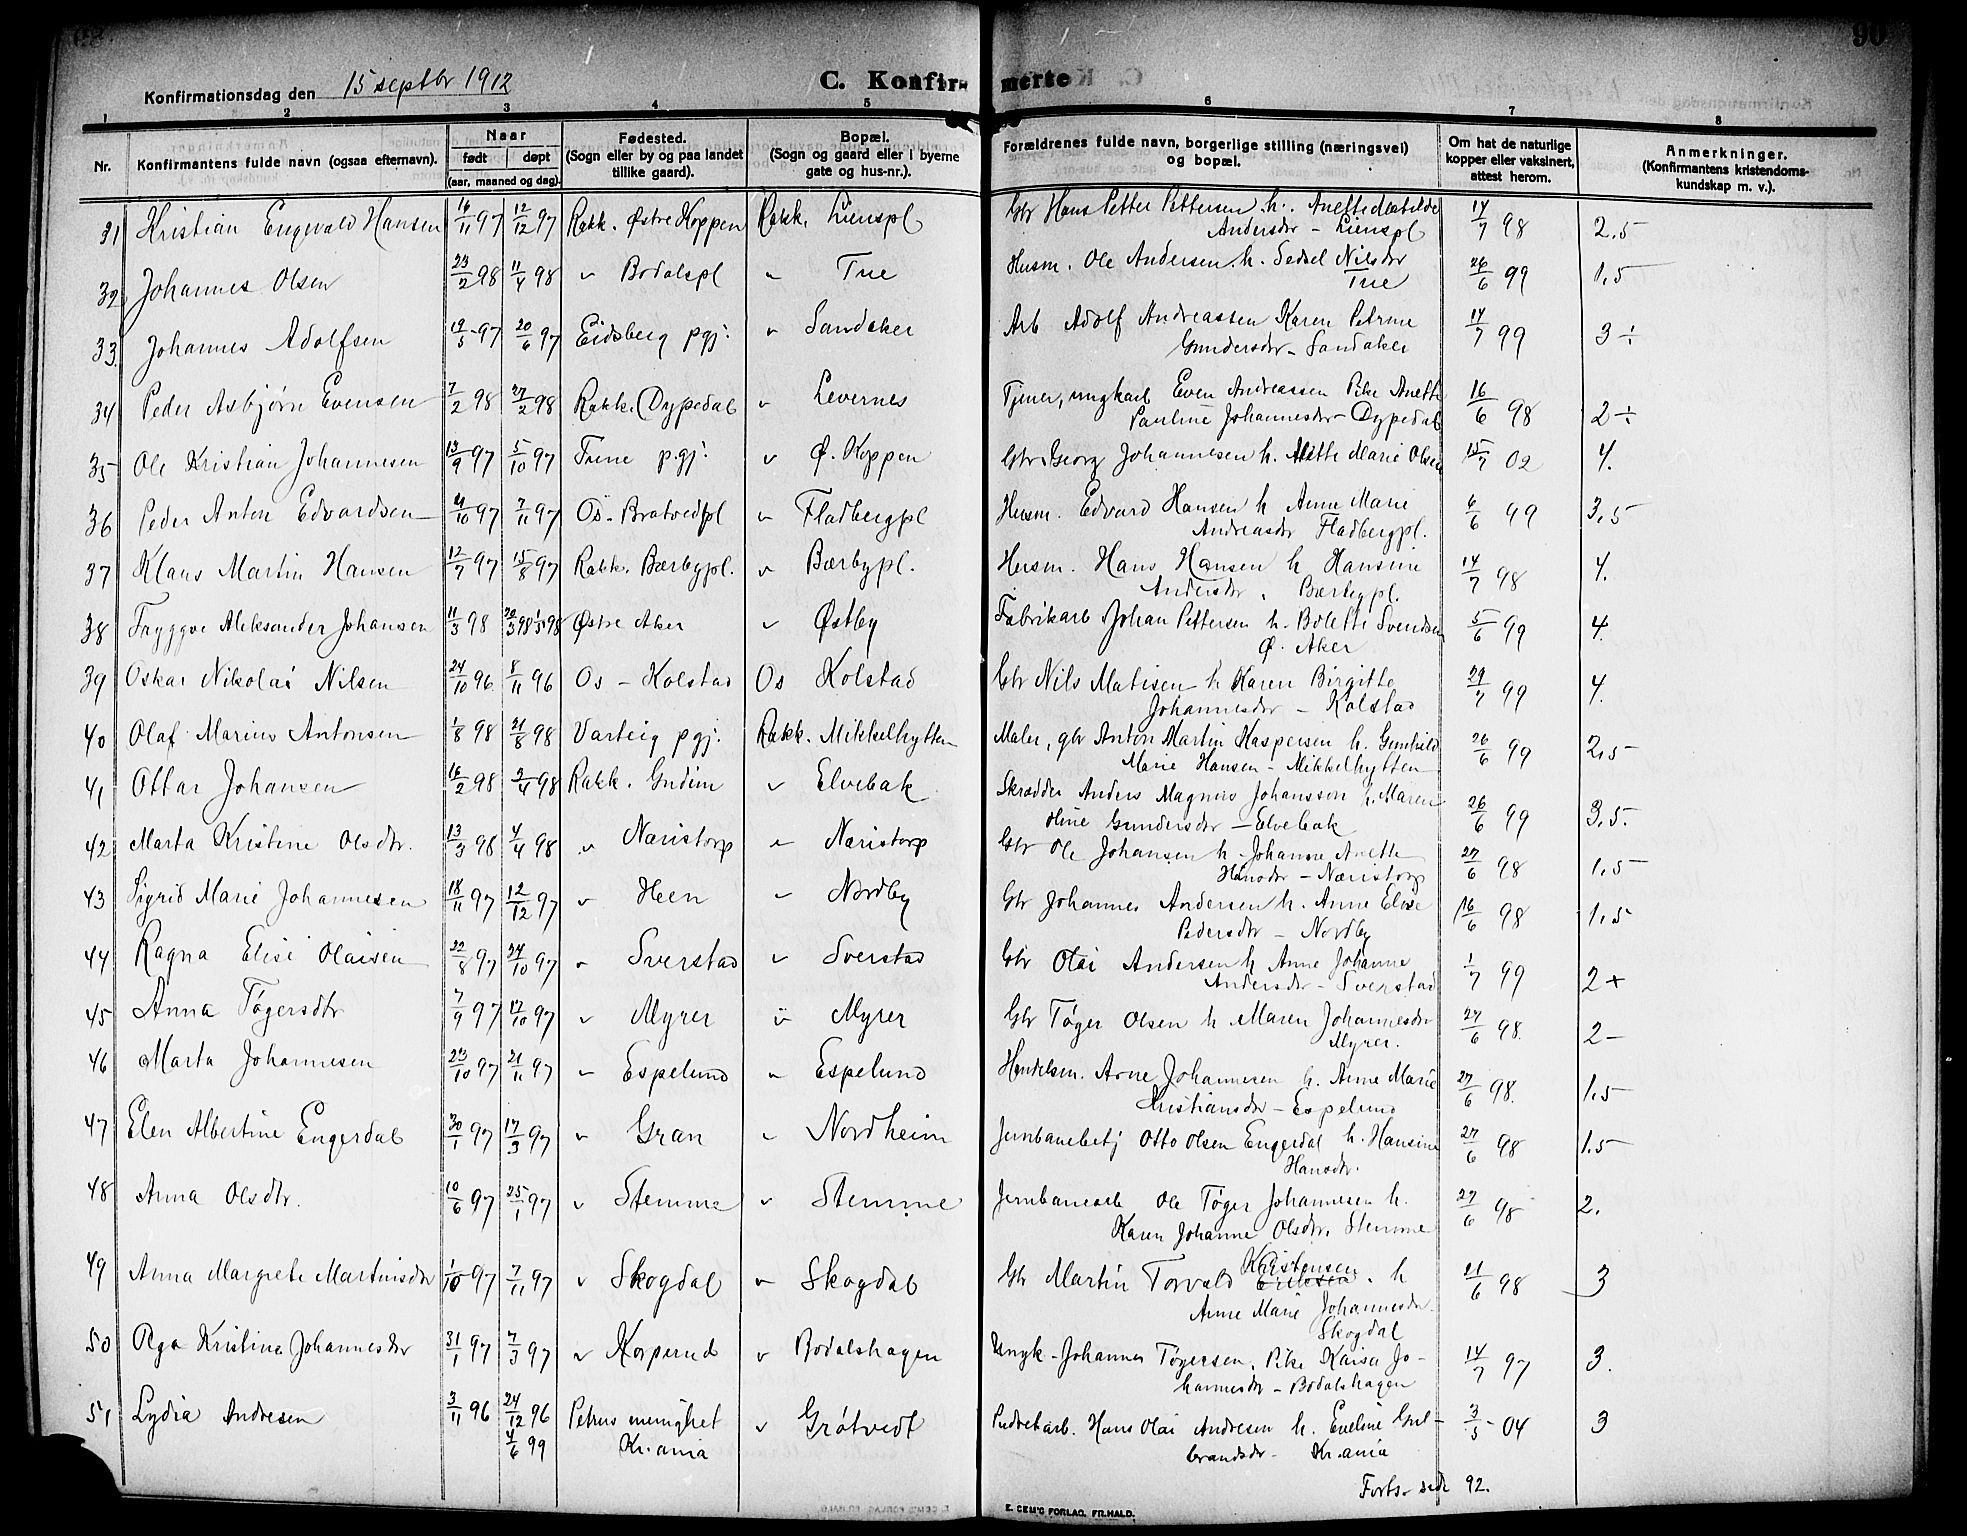 90
Konfirmationsdag den 15 septbr 1912
C. Konfir- merte
1 2 3 4 5 6 7 8
Nr. Konfirmantens fulde navn (ogsaa efternavn). Naar født døpt (aar, maaned og dag). Fødested. (Sogn eller by og paa landet tillike gaard). Bopæl. (Sogn og gaard eller i byerne gate og hus-nr.). Forældrenes fulde navn, borgerlige stilling (næringsvei) og bopæl. Om hat de naturlige kopper eller vaksinert, attest herom. Anmerkninger. (Konfirmantens kristendoms- kundskap m. v.).
31 Kristian Engvald Hansen 16/11 97 12/12 97 Rakk. Østre Koppen Rakk. Lienspl Gbr Hans Petter Pettersen h. Anette Matilde 14/7 98 2.5
Andersdr - Lienspl
32 Johannes Olsen 23/2 98 11/4 98 " Bodalspl " Tue Husm. Ole Andersen h. Sedsel Nilsdr 26/6 99 1,5
Tue
33. Johannes Adolfsen 19/5 97 20/6 97 Eidsberg pgj. " Sandaker Arb Adolf Andreassen Karen Petrine 14/7 99 3 ÷
Gundersdr - Sandaker
34 Peder Asbjørn Evensen 7/2 98 27/2 98 Rakk. (Dypedal " Levernes Tjener, ungkarl Even Andreassen Pike Anette 16/6 98 2 ÷
Pauline Johannesdr - Dypedal
35 Ole Kristian Johannesen 13/9 97 5/10 97 Trøne pgj. " Ø. Koppen Gbr Georg Johannesen h. Mette Marie Olsen 15/7 02 4.
36 Peder Anton Edvardsen 4/10 97 7/11 97 Os - Bratvedpl " Fladbergpl Husm. Edvard Hansen h Anne Marie 6/6 99 3,5
Andreasdr Fladbergpl.
37 Klaus Martin Hansen 12/7 97 15/8 97 Rakk. Bærbypl. " Bærbypl. Husm. Hans Hansen h Hansine 14/7 98 4.
Andersdr, Bærbypl.
38 Tryggve Aleksander Johansen 11/3 98 20/3 98 1/5 98 Østre Aker " Østby Fabrikarb Johan Pettersen h. Bolette Svendsen 5/6 99 4.
Ø. Aker
39 Oskar Nikolai Nilsen 24/10 96 8/11 96 Os - Kolstad Os Kolstad Gbr Nils Matisen h Karen Birgitte 29/7 99 4.
Johannesdr - Kolstad
40 Olaf Marius Antonsen 1/8 98 21/8 98 Varteig pgj. Rakk. Mikkelhytten Maler, gbr Anton Martin Kaspersen h. Gunhild 26/6 99 2,5
Marie Hansen - Mikkelhytten
41 Ottar Johansen 16/2 98 3/4 98 Rakk. Gudim " Elvebak Skrædder Anders Magnus Johansson h. Maren 26/6 99 3,5.
Oline Gundersdr - Elvebak
42 Marta Kristine Olsdtr. 13/3 98 4/4 98 " Næristorp " Næristorp Gbr Ole Johansen h. Johanne Anette 27/6 98 1.5
Hansdr - Næristorp
43 Sigrid Marie Johannesen 18/11 97 12/12 97 " Heen " Nordby Gbr Johannes Andersen h. Anne Elise 16/6 98 1.5
Pedersdr - Nordby
44 Ragna Elise Olaisen 22/8 97 24/10 97 " Sverstad " Sverstad Gbr Olai Andersen h Anne Johanne 1/7 99 2 +
Andersdr - Sverstad
45 Anna Tøgersdtr 7/9 97 17/10 97 " Myrer " Myrer Gbr Tøger Olsen h Maren Johannesdr 27/6 98. 2 -
Myrer.
46 Marta Johannesen 23/10 97 21/11 97 " Espelund " Espelund Handelsm. Arne Johannesen h. Anne Marie 27/6 98. 1.5
Kristiansdr - Espelund
47 Elen Albertine Engerdal 30/1 97 17/3 97 " Gran " Nordheim Jernbanebetj Otto Olsen Engerdal h. Hansine 27/6 98 1.5
Hansdtr.
48 Anna Olsdtr. 10/6 97 25/1 97 " Stemme " Stemme Jernbanearb Ole Tøger Johannesen h. 27/6 98 2.
Karen Johanne Olsdtr, Stemme
49 Anna Margrete Martinsdtr 1/10 97 7/11 97 " Skogdal " Skogdal Gbr Martin Torvald Kristensen h 21/6 98 3
Anne Marie Johannesdr
Skogdal
50 Aga Kristine Johannesdtr 31/1 97 7/3 97 " Korperud " Bodalshagen Ungk. Johannes Tøgersen, Pike Kaisa Jo- 14/7 97 3.
hannesdr - Bodalshagen
51 Lydia Andresen 3/11 96 24/12 96 Petrus menighet " Grøtvedt Pudretarb. Hans Olai Andresen h. Eveline Gul- 3/5 04 3
4/6 99 Kr.ania brandsdr - Kr.ania
Forts. side 92.
E. CEM'S FORLAG, FR.HALD.